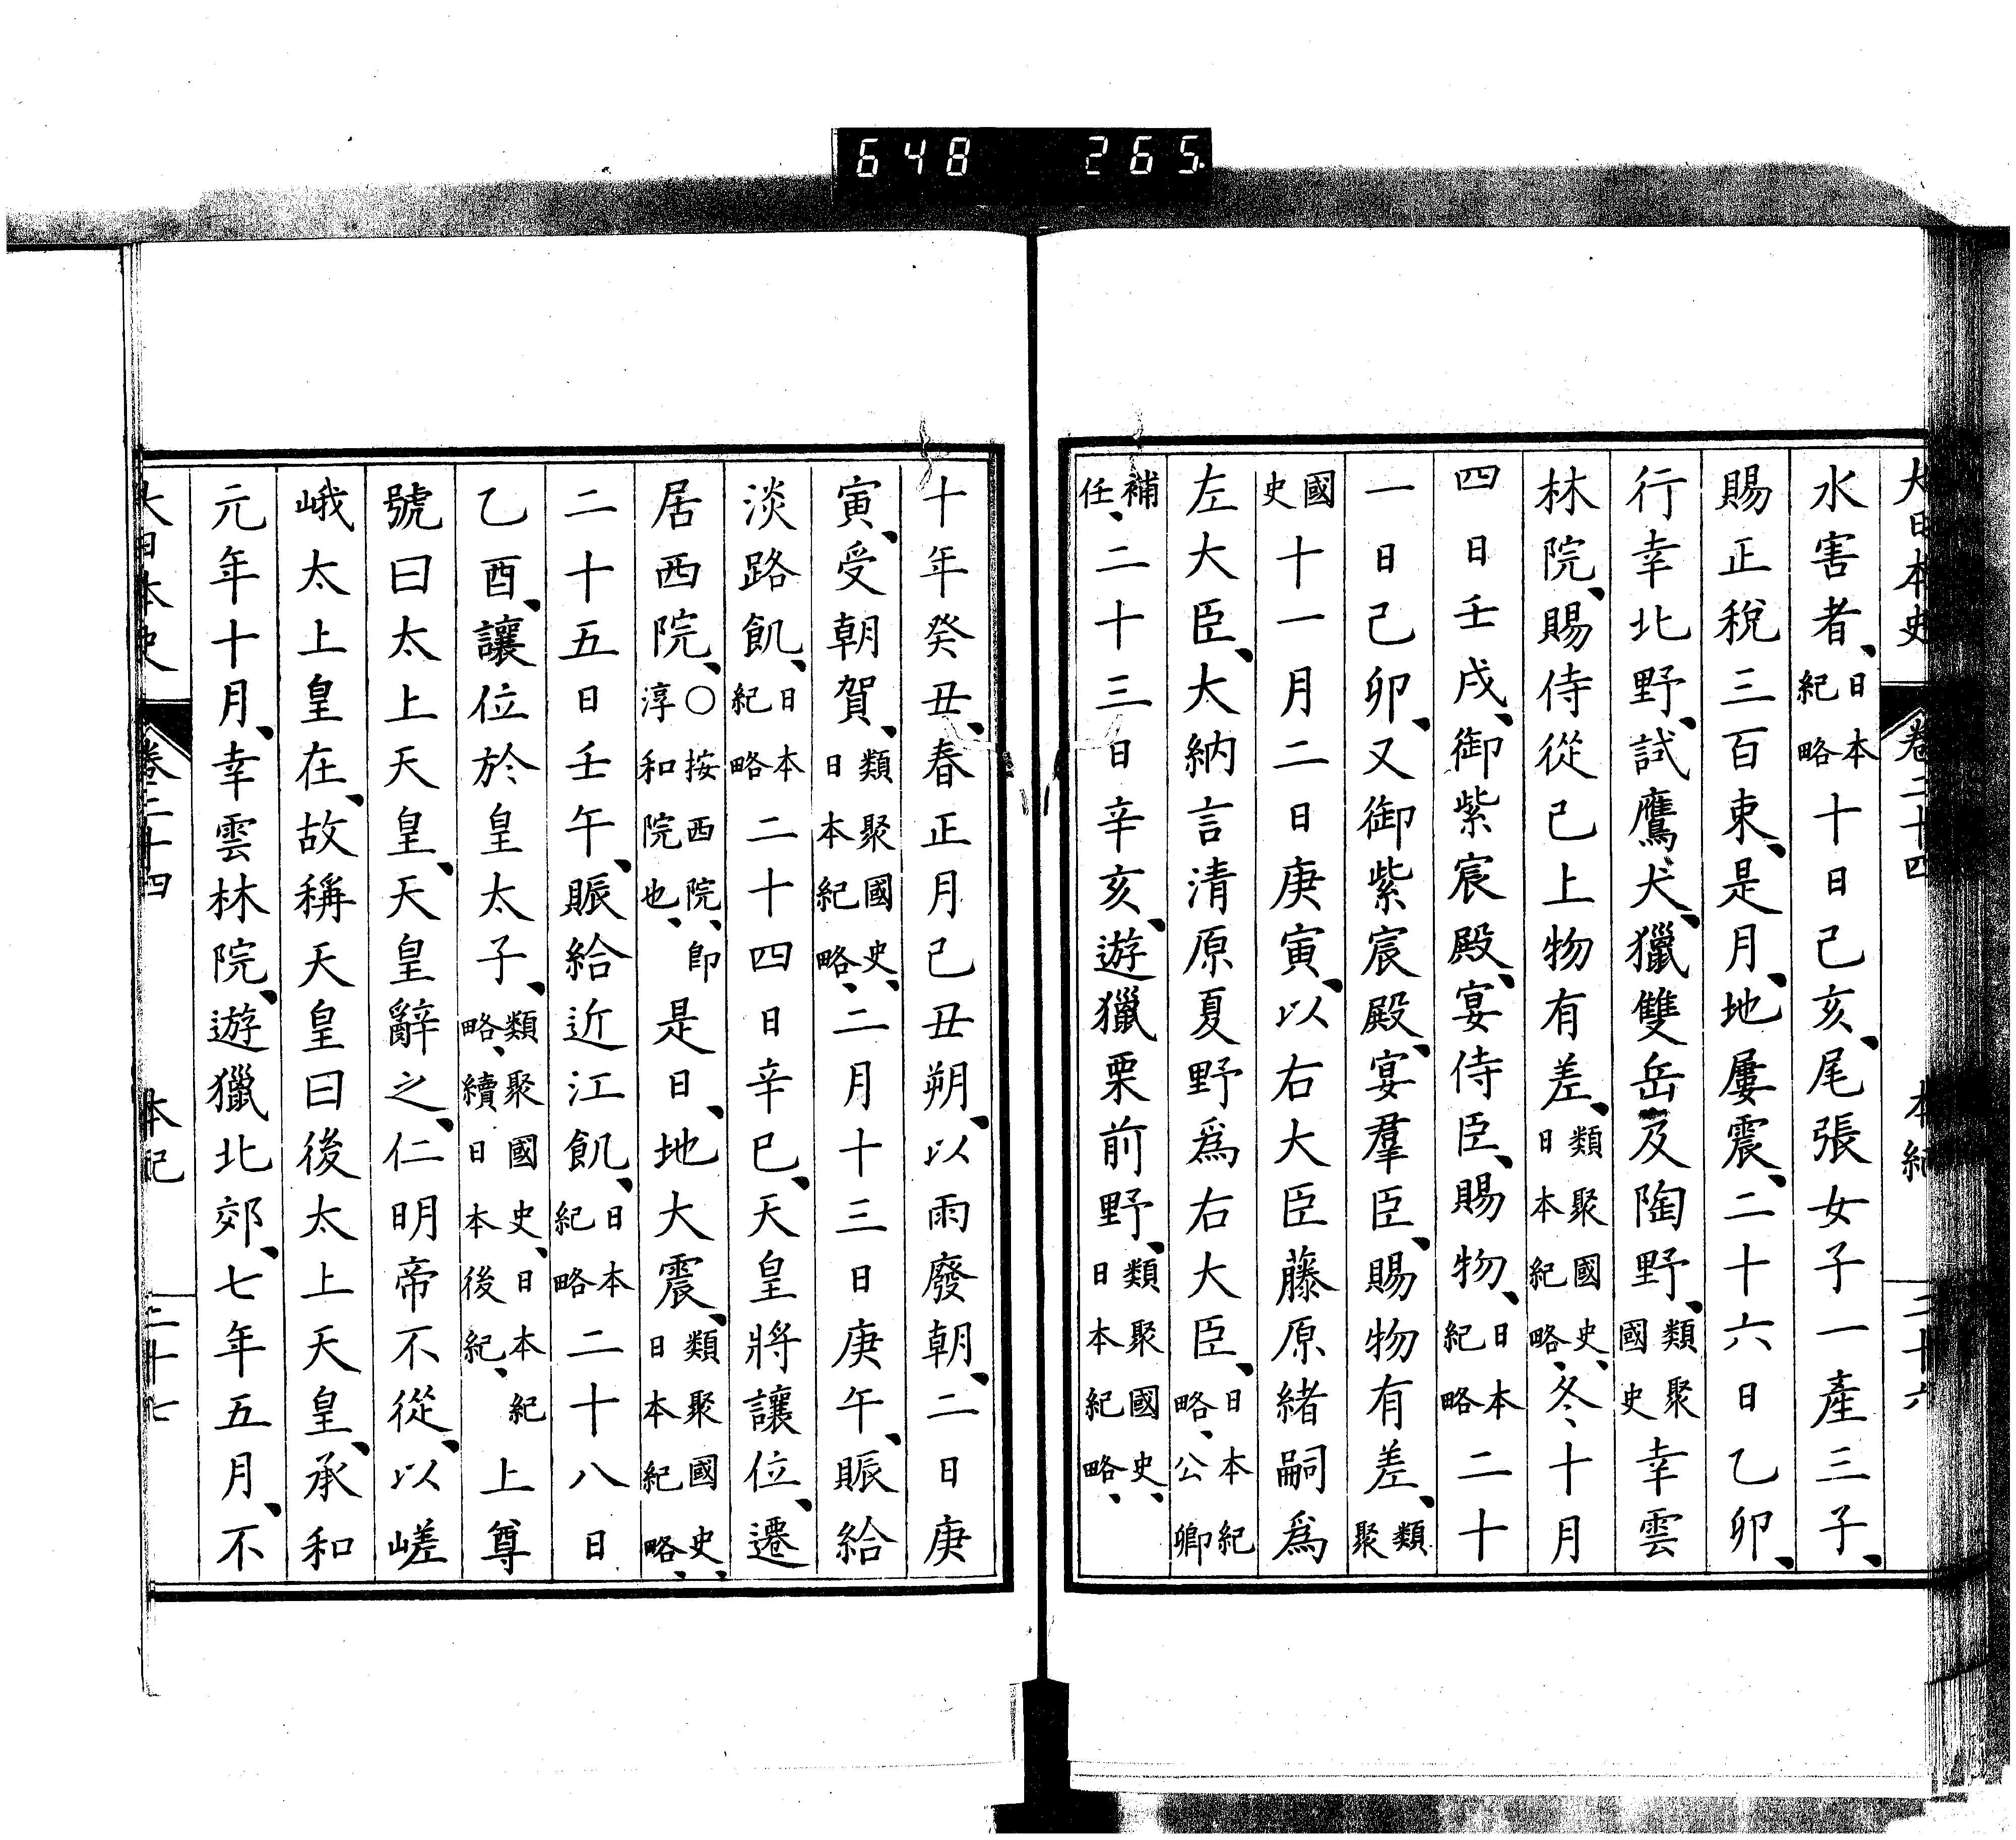 648 265
大日本史 卷二十四 本紀 二十六
水害者、日本紀略十日己亥、尾張女子一產三子、
賜正稅三百束、是月、地屢震、二十六日乙卯、
行幸北野、試鷹犬、獵雙岳及陶野、類聚國史幸雲
林院、賜侍從已上物有差、類聚國史、日本紀略、冬十月
四日壬戌、御紫宸殿、宴侍臣、賜物、日本紀略二十
一日己卯、又御紫宸殿、宴羣臣、賜物有差、類聚
國史十一月二日庚寅、以右大臣藤原緒嗣爲
左大臣、大納言清原夏野爲右大臣、日本紀略、公卿
補任、二十三日辛亥、遊獵栗前野、類聚國史、日本紀略、
十年癸丑、春正月己丑朔、以雨廢朝、二日庚
寅、受朝賀、類聚國史、日本紀略、二月十三日庚午、賑給
淡路飢、日本紀略二十四日辛巳、天皇將讓位、遷
居西院、○按西院、卽淳和院也、是日、地大震、類聚國史、日本紀略、
二十五日壬午、賑給近江飢、日本紀略二十八日
乙酉、讓位於皇太子、類聚國史、日本紀略、續日本後紀、上尊
號曰太上天皇、天皇辭之、仁明帝不從、以嵯
峨太上皇在、故稱天皇曰後太上天皇、承和
元年十月、幸雲林院、遊獵北郊、七年五月、不
大日本史 卷二十四 本紀 二十七